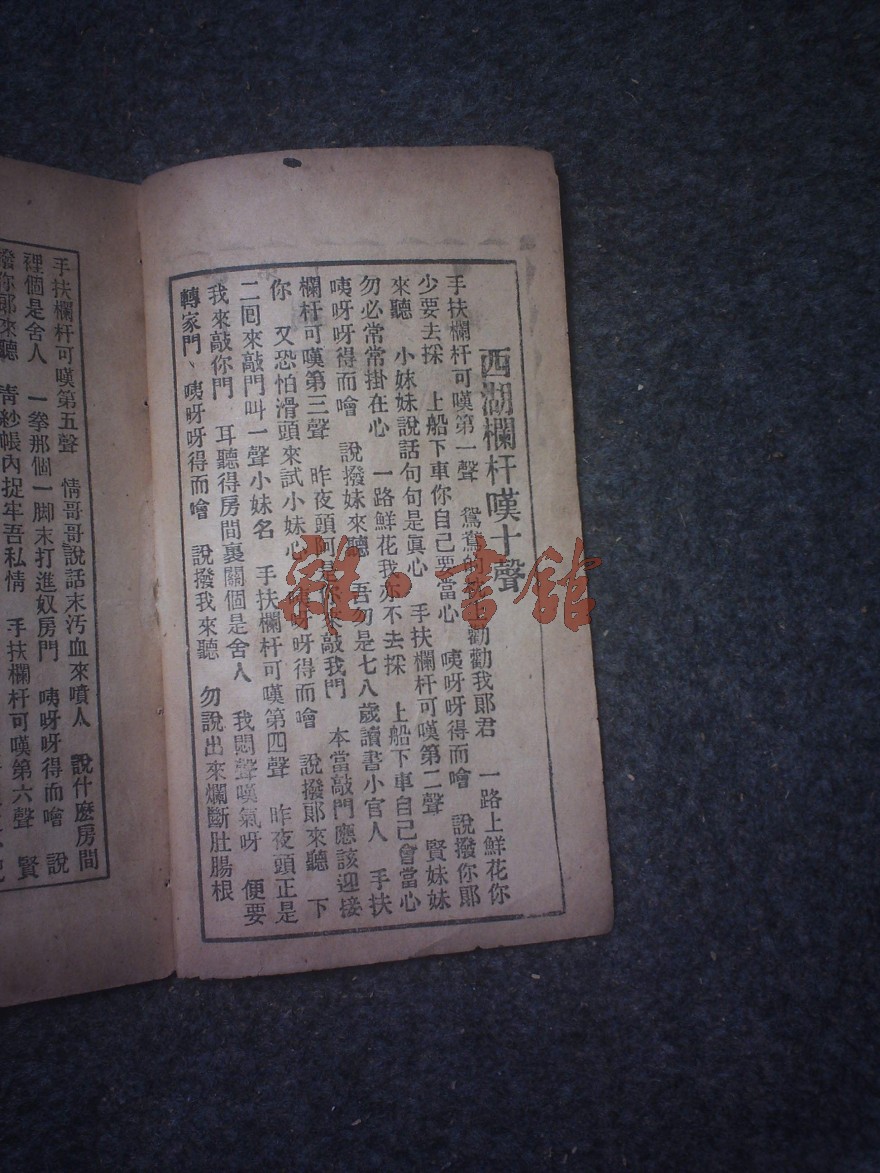 西湖欄杆嘆十聲
手扶欄杆可嘆第一聲 鴛鴦的 勸勸我郞君 一路上鮮花你
少要去採 上船下車你自己要當心 咦呀呀得而噲 說撥你郞
來聽 小妹妹說話句句是眞心 手扶欄杆可嘆第二聲 賢妹妹
勿必常常掛在心 一路鮮花我亦不去採 上船下車自己會當心
咦呀呀得而噲 說撥妹來聽 吾勿是七八歲讀書小官人 手扶
欄杆可嘆第三聲 昨夜頭阿是 敲我門 本當敲門應該迎接
你 又恐怕滑頭來試小妹心 咦呀呀得而噲 說撥郞來聽 下
二囘來敲門叫一聲小妹名 手扶欄杆可嘆第四聲 昨夜頭正是
我來敲你門 耳聽得房間裏關個是舍人 我悶聲嘆氣呀 便要
轉家門、咦呀呀得而噲 說撥我來聽 勿說出來爛斷肚腸根
手扶欄杆可嘆第五聲 情哥哥說話末汚血來噴人 說什麽房間
裡個是舍人 一拳那個一脚末打進奴房門 咦呀呀得而噲 說
撥你郞來聽 靑紗帳內捉牢吾私情 手扶欄杆可嘆第六聲 賢
雜·書館